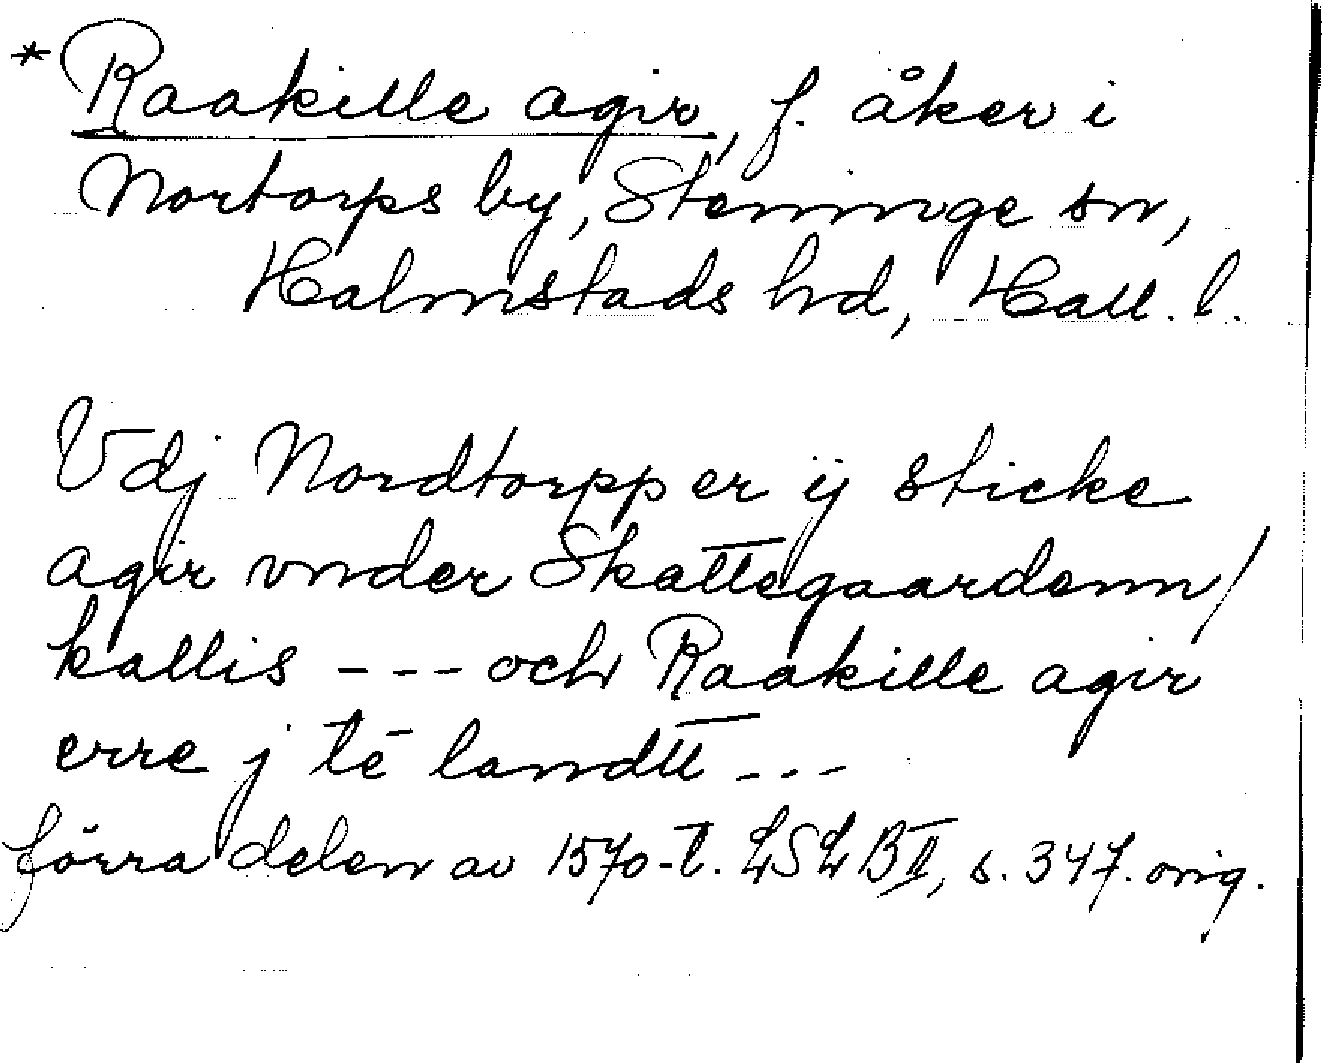 * Raakille agir, f. åker i
Nortorps by, Steninge sn,
Halmstads hd, Hall. l.
Vdj Nordtorpp er ij sticke
agir vnder Skattegaardenn/
kallis --- och Raakille agir
erre j tē landtt ---
förra delen av 1570-t. LSL BII, s. 347. orig.